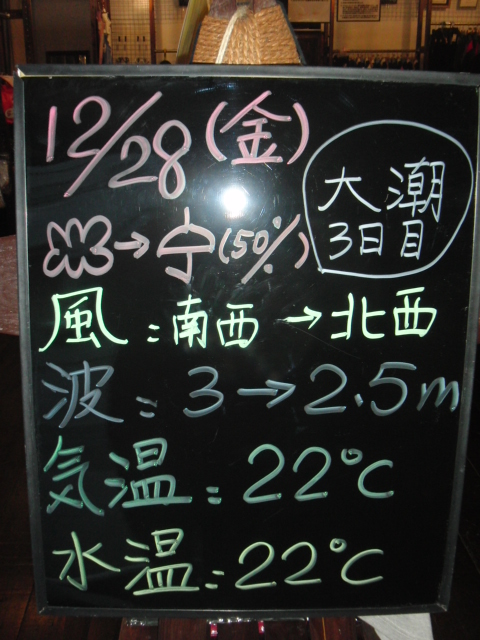 12/28(金)
大潮
3日目
→ (50%)
風:南西→北西
波:3→2.5m
気温:22℃
水温:22℃